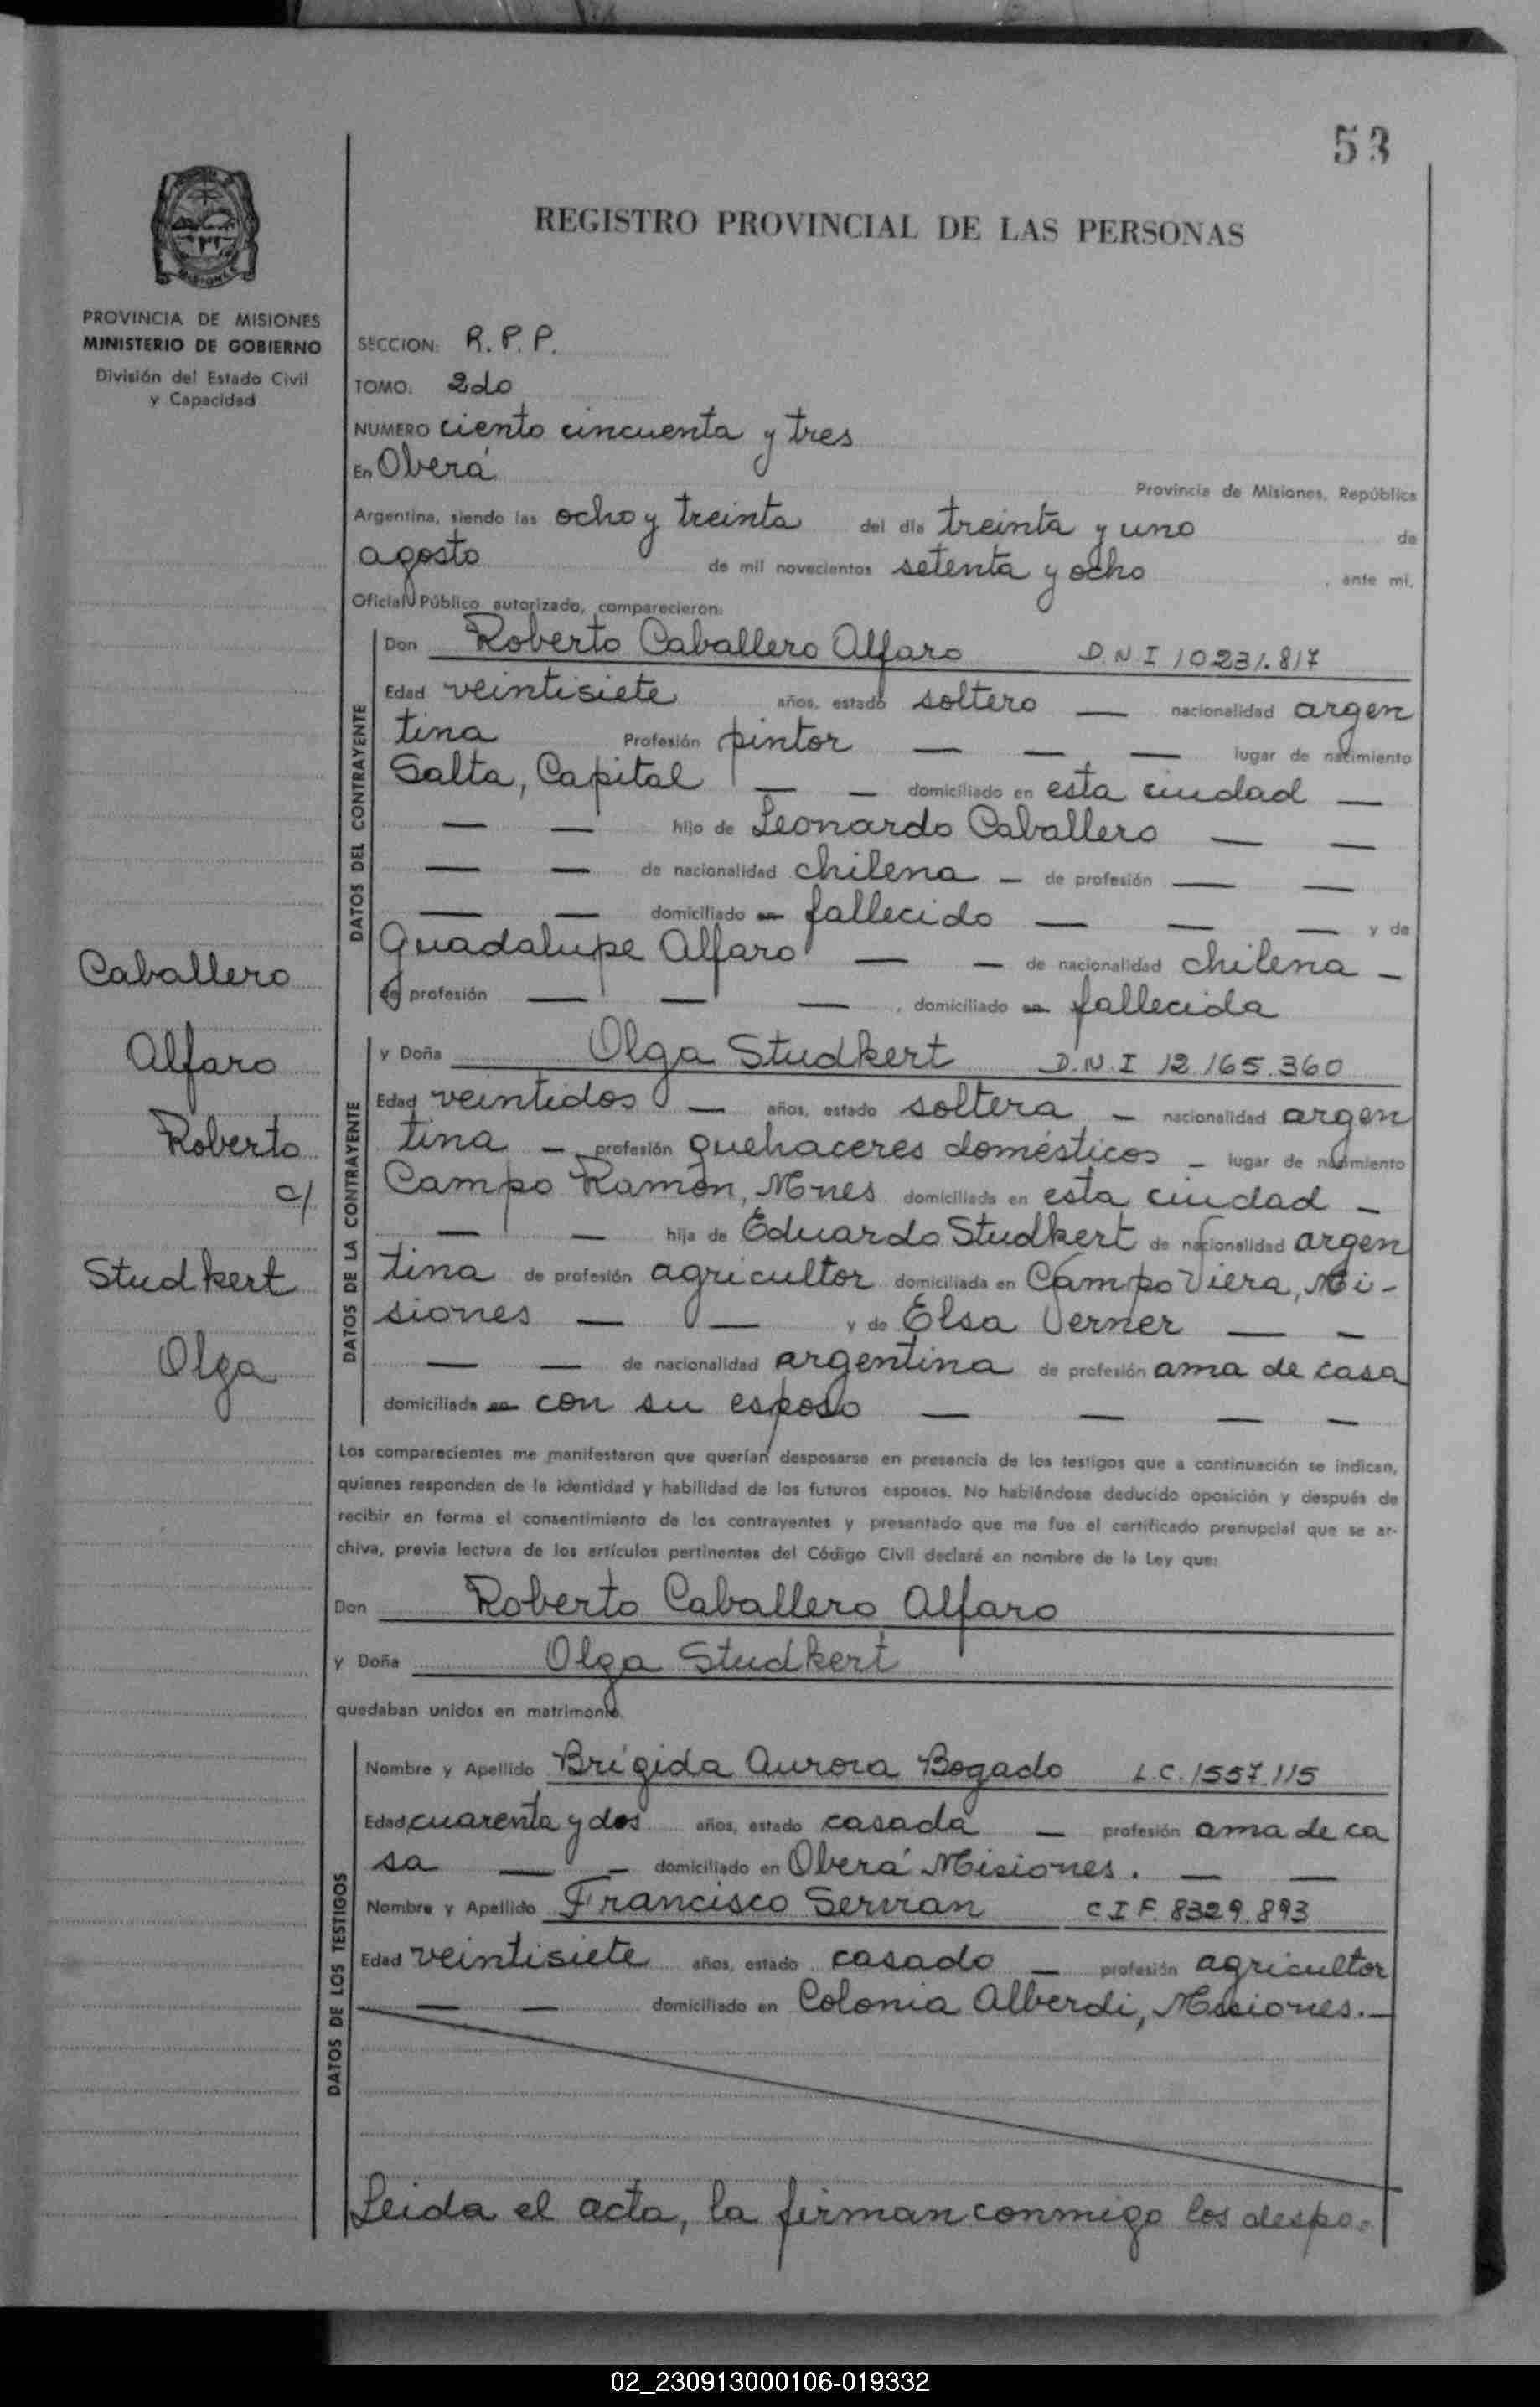 53
REGISTRO PROVINCIAL DE LAS PERSONAS
MISIONES
PROVINCIA DE MISIONES
MINISTERIO DE GOBIERNO
División del Estado Civil
y Capacidad
SECCION: R. P. P.
TOMO. 2do
NUMERO ciento cincuenta y tres
En Oberá
Provincia de Misiones, República
Argentina, siendo las ocho y treinta del día treinta y uno de
agosto de mil novecientos setenta y ocho, ante mí,
Oficial Público autorizado, comparecieron:
DATOS DEL CONTRAYENTE
Don Roberto Caballero Alfaro D.N.I 10231.817
Edad veintisiete años, estado soltero — nacionalidad argen
tina Profesión pintor — — — lugar de nacimiento
Salta, Capital — — domiciliado en esta ciudad —
— — hijo de Leonardo Caballero — —
— — de nacionalidad chilena — de profesión — —
— — domiciliado en fallecido — — — y de
Guadalupe Alfaro — — de nacionalidad chilena —
de profesión — — — , domiciliado en fallecida
DATOS DE LA CONTRAYENTE
y Doña Olga Studkert D.N.I 12.165.360
Edad veintidos — años, estado soltera — nacionalidad argen
tina — profesión quehaceres domésticos — lugar de nacimiento
Campo Ramón, Mnes domiciliada en esta ciudad —
— — hija de Eduardo Studkert de nacionalidad argen
tina de profesión agricultor domiciliada en Campo Viera, Mi-
siones — — y de Elsa Verner — —
— — de nacionalidad argentina de profesión ama de casa
domiciliada en con su esposo — — — —
Caballero
Alfaro
Roberto
c/
Studkert
Olga
Los comparecientes me manifestaron que querían desposarse en presencia de los testigos que a continuación se indican,
quienes responden de la identidad y habilidad de los futuros esposos. No habiéndose deducido oposición y después de
recibir en forma el consentimiento de los contrayentes y presentado que me fue el certificado prenupcial que se ar-
chiva, previa lectura de los artículos pertinentes del Código Civil declaré en nombre de la Ley que:
Don Roberto Caballero Alfaro
y Doña Olga Studkert
quedaban unidos en matrimonio.
DATOS DE LOS TESTIGOS
Nombre y Apellido Brígida Aurora Bogado L.C. 1557.115
Edad cuarenta y dos años, estado casada — profesión ama de ca
sa — — domiciliado en Oberá Misiones. — —
Nombre y Apellido Francisco Servian C I F. 8329.893
Edad veintisiete años, estado casado — profesión agricultor
— — domiciliado en Colonia Alberdi, Misiones.—
Leida el acta, la firman conmigo los despo-
02_230913000106-019332